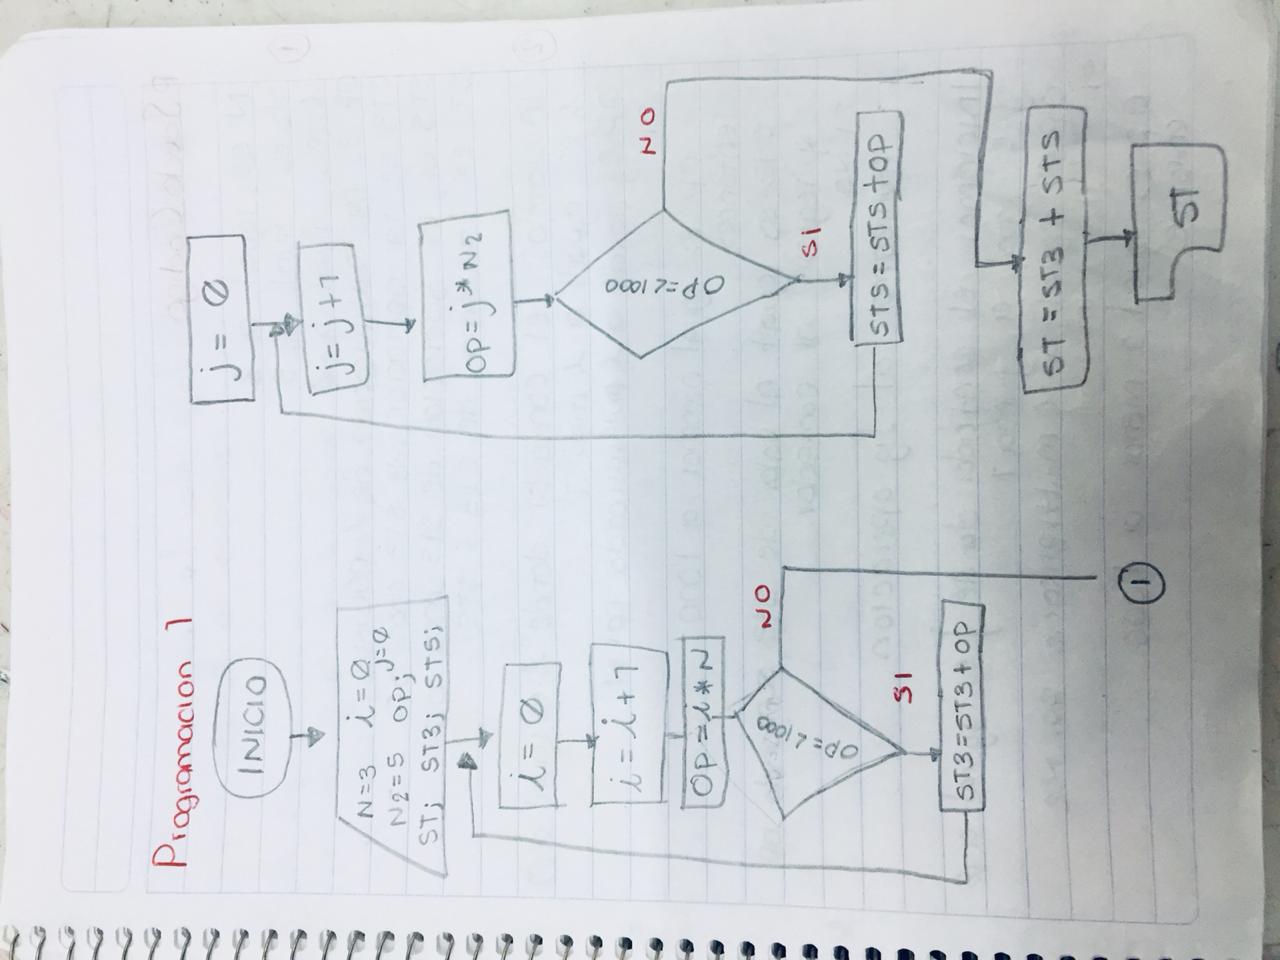 Programacion 1
INICIO
N=3 i=0
N2=5 OP; j=0
ST; ST3; ST5;
i = 0
i = i + 1
OP = i * N
OP = < 1000
NO
SI
ST3 = ST3 + OP
1
j = 0
j = j + 1
OP = j * N2
OP = < 1000
NO
Si
ST5 = ST5 + OP
ST = ST3 + ST5
ST